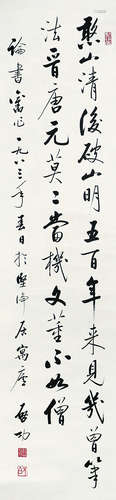 憨山清後破山明五百年来見幾曾筆
法晋唐元莫二當機文董不如僧
論書舊作一九八三年春日於堅浄居寓廬 啟功